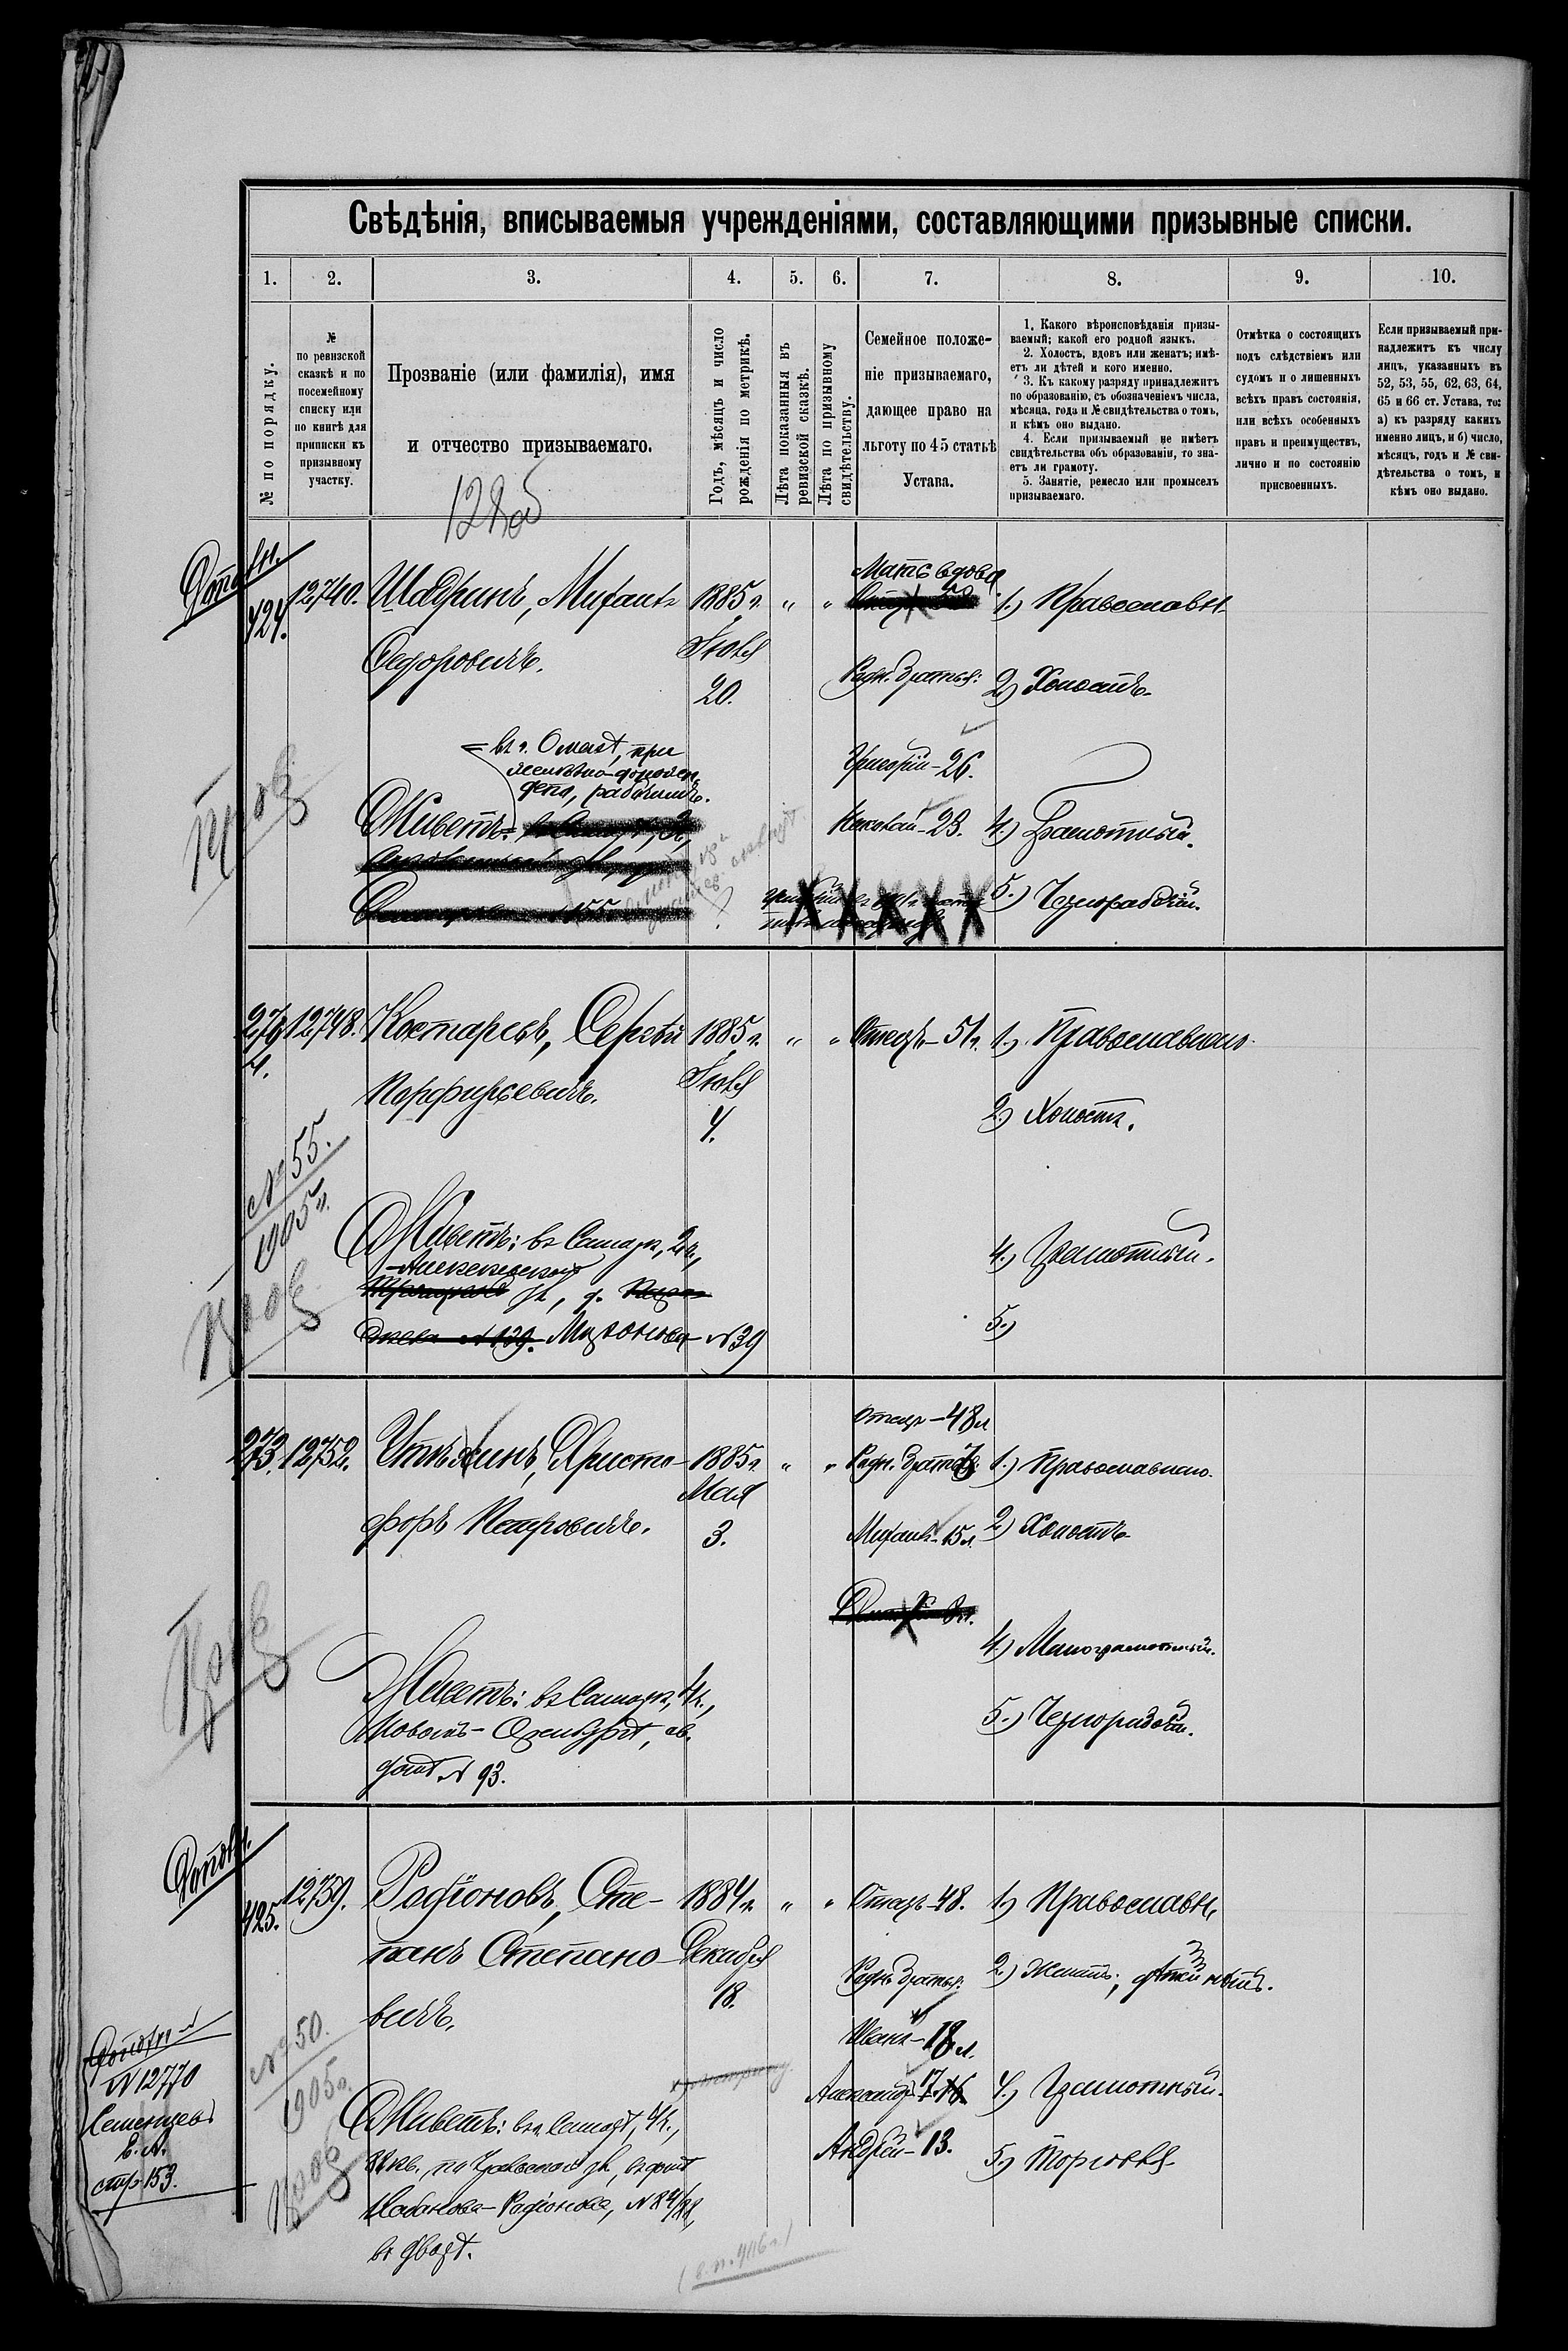 Свѣдѣнія, вписываемыя учрежденіями, составляющими призывные списки.
1.
2.
3.
4.
5.
6.
7.
8.
9.
10.
№ по порядку.
№
по ревизской
сказкѣ и по
посемейному
списку или
по книгѣ для
приписки къ
призывному
участку.
Прозваніе (или фамилія), имя
и отчество призываемаго.
Годъ, мѣсяцъ и число
рожденія по метрикѣ.
Лѣта показанныя въ
ревизской сказкѣ.
Лѣта по призывному
свидѣтельству.
Семейное положе-
ніе призываемаго,
дающее право на
льготу по 45 статьѣ
Устава.
1. Какого вѣроисповѣданія призы-
ваемый; какой его родной языкъ.
2. Холостъ, вдовъ или женатъ; имѣ-
етъ ли дѣтей и кого именно.
3. Къ какому разряду принадлежитъ
по образованію, съ обозначеніемъ числа,
мѣсяца, года и № свидѣтельства о томъ,
и кѣмъ оно выдано.
4. Если призываемый не имѣетъ
свидѣтельства объ образованіи, то зна-
етъ ли грамоту.
5. Занятіе, ремесло или промыселъ
призываемаго.
Отмѣтка о состоящихъ
подъ слѣдствіемъ или
судомъ и о лишенныхъ
всѣхъ правъ состоянія,
или всѣхъ особенныхъ
правъ и преимуществъ,
лично и по состоянію
присвоенныхъ.
Если призываемый при-
надлежитъ къ числу
лицъ, указанныхъ въ
52, 53, 55, 62, 63, 64,
65 и 66 ст. Устава, то:
а) къ разряду какихъ
именно лицъ, и б) число,
мѣсяцъ, годъ и № сви-
дѣтельства о томъ, и
кѣмъ оно выдано.
424.
12740.
Шадринъ, Михаилъ
Федоровичъ.
1885 г.
Іюля
20.
"
"
Мать вдова
Родн. братья:
Григорій-26.
Николай-23.
1.) Православн.
2) Холостъ.
4.) Грамотный.
5.) Чернорабочій.
въ г. Омскѣ, при
желѣзно-дорожн.
депо, рабочимъ.
Живетъ:
12748.
Костаревъ, Сергѣй
Порфирьевичъ.
1885 г.
Іюля
4.
"
"
Отецъ-51 г.
1.) Православнаго
2) Холостъ.
4.) Грамотный.
5.)
№ 55.
1905 г.
Живетъ: въ Самарѣ, 2 ч.,
Алексѣевской
ул., д.
№ 139.
№ 39
273.
12752.
Утѣхинъ, Христо-
форъ Петровичъ.
1885 г.
Мая
3.
"
"
Отецъ-48 л
Родн. братья:
Михаилъ-15 л.
1.) Православнаго.
2) Холостъ.
4.) Малограмотный.
5.) Чернорабочій.
Живетъ: въ Самарѣ, 4 ч.,
Новый-Оренбургъ, св.
домъ № 93.
425.
12759.
Родіоновъ, Сте-
панъ Степано-
вичъ.
1884 г.
Декабря
18.
"
"
Отецъ-48.
Родн. братья:
Иванъ-18 л.
Александръ 17
Андрей-13.
1.) Православн.
2.) Женатъ; дѣтей нѣтъ.
4.) Грамотный.
5.) Торговля
№ 50.
1905 г.
Живетъ: въ г. Самарѣ, 4 ч.,
кв. по Уральской ул., въ домѣ
Кабанова-Родіонова, № 84/88,
въ дворѣ.
Дополн.
№ 12770
Семенцевъ
стр. 153.